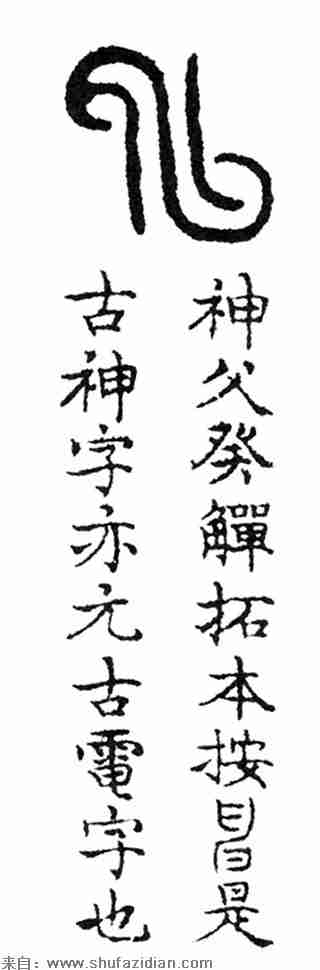 神父癸觶拓本按是
古神字亦元古電字也
来自：www.shufazidian.com